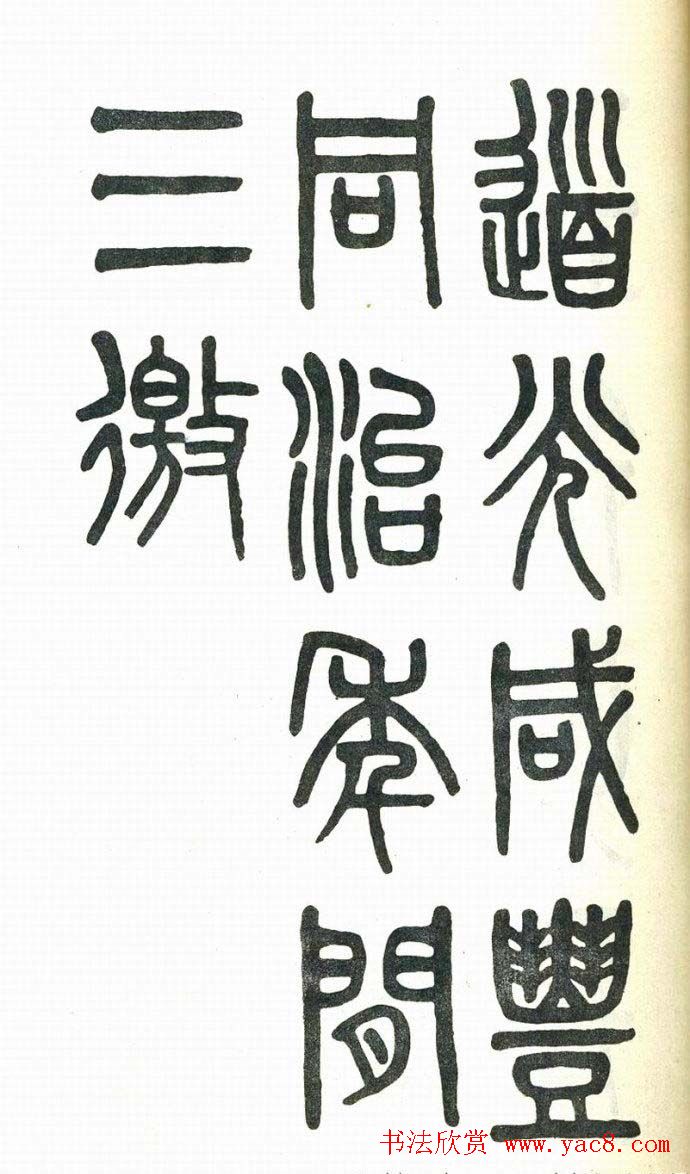 道光咸豐
同治年閒
三徼
书法欣赏 www.yac8.com